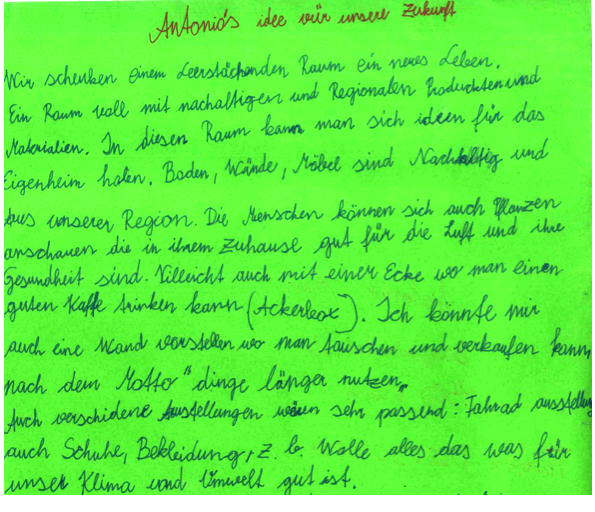 Antonio's idee vür unsere Zukunft
Wir schenken einem Leerstächenden Raum ein neues Leben.
Ein Raum voll mit nachaltigen und Regionalen Producktenund
Materialien. In diesen Raum kann man sich ideen für das
Eigenheim holen. Boden, Wände, Möbel sind Nachhaltig und
Aus unserer Region. Die Menschen können sich auch Pflanzen
anschauen die in ihrem Zuhause gut für die Luft und ihre
Gesundheit sind. Villeicht auch mit einer Ecke wo man einen
guten Kaffe trinken kann (Ackerbox). Ich könnte mir
auch eine Wand vorstellen wo man tauschen und verkaufen kann,
nach dem Motto "dinge länger nutzen„
Auch verschidene Austellungen wären sehr passend: Fahrad ausstellung
auch Schuhe, Bekleidung, z. b. Wolle alles das was für
unser Klima und Umwelt gut ist.